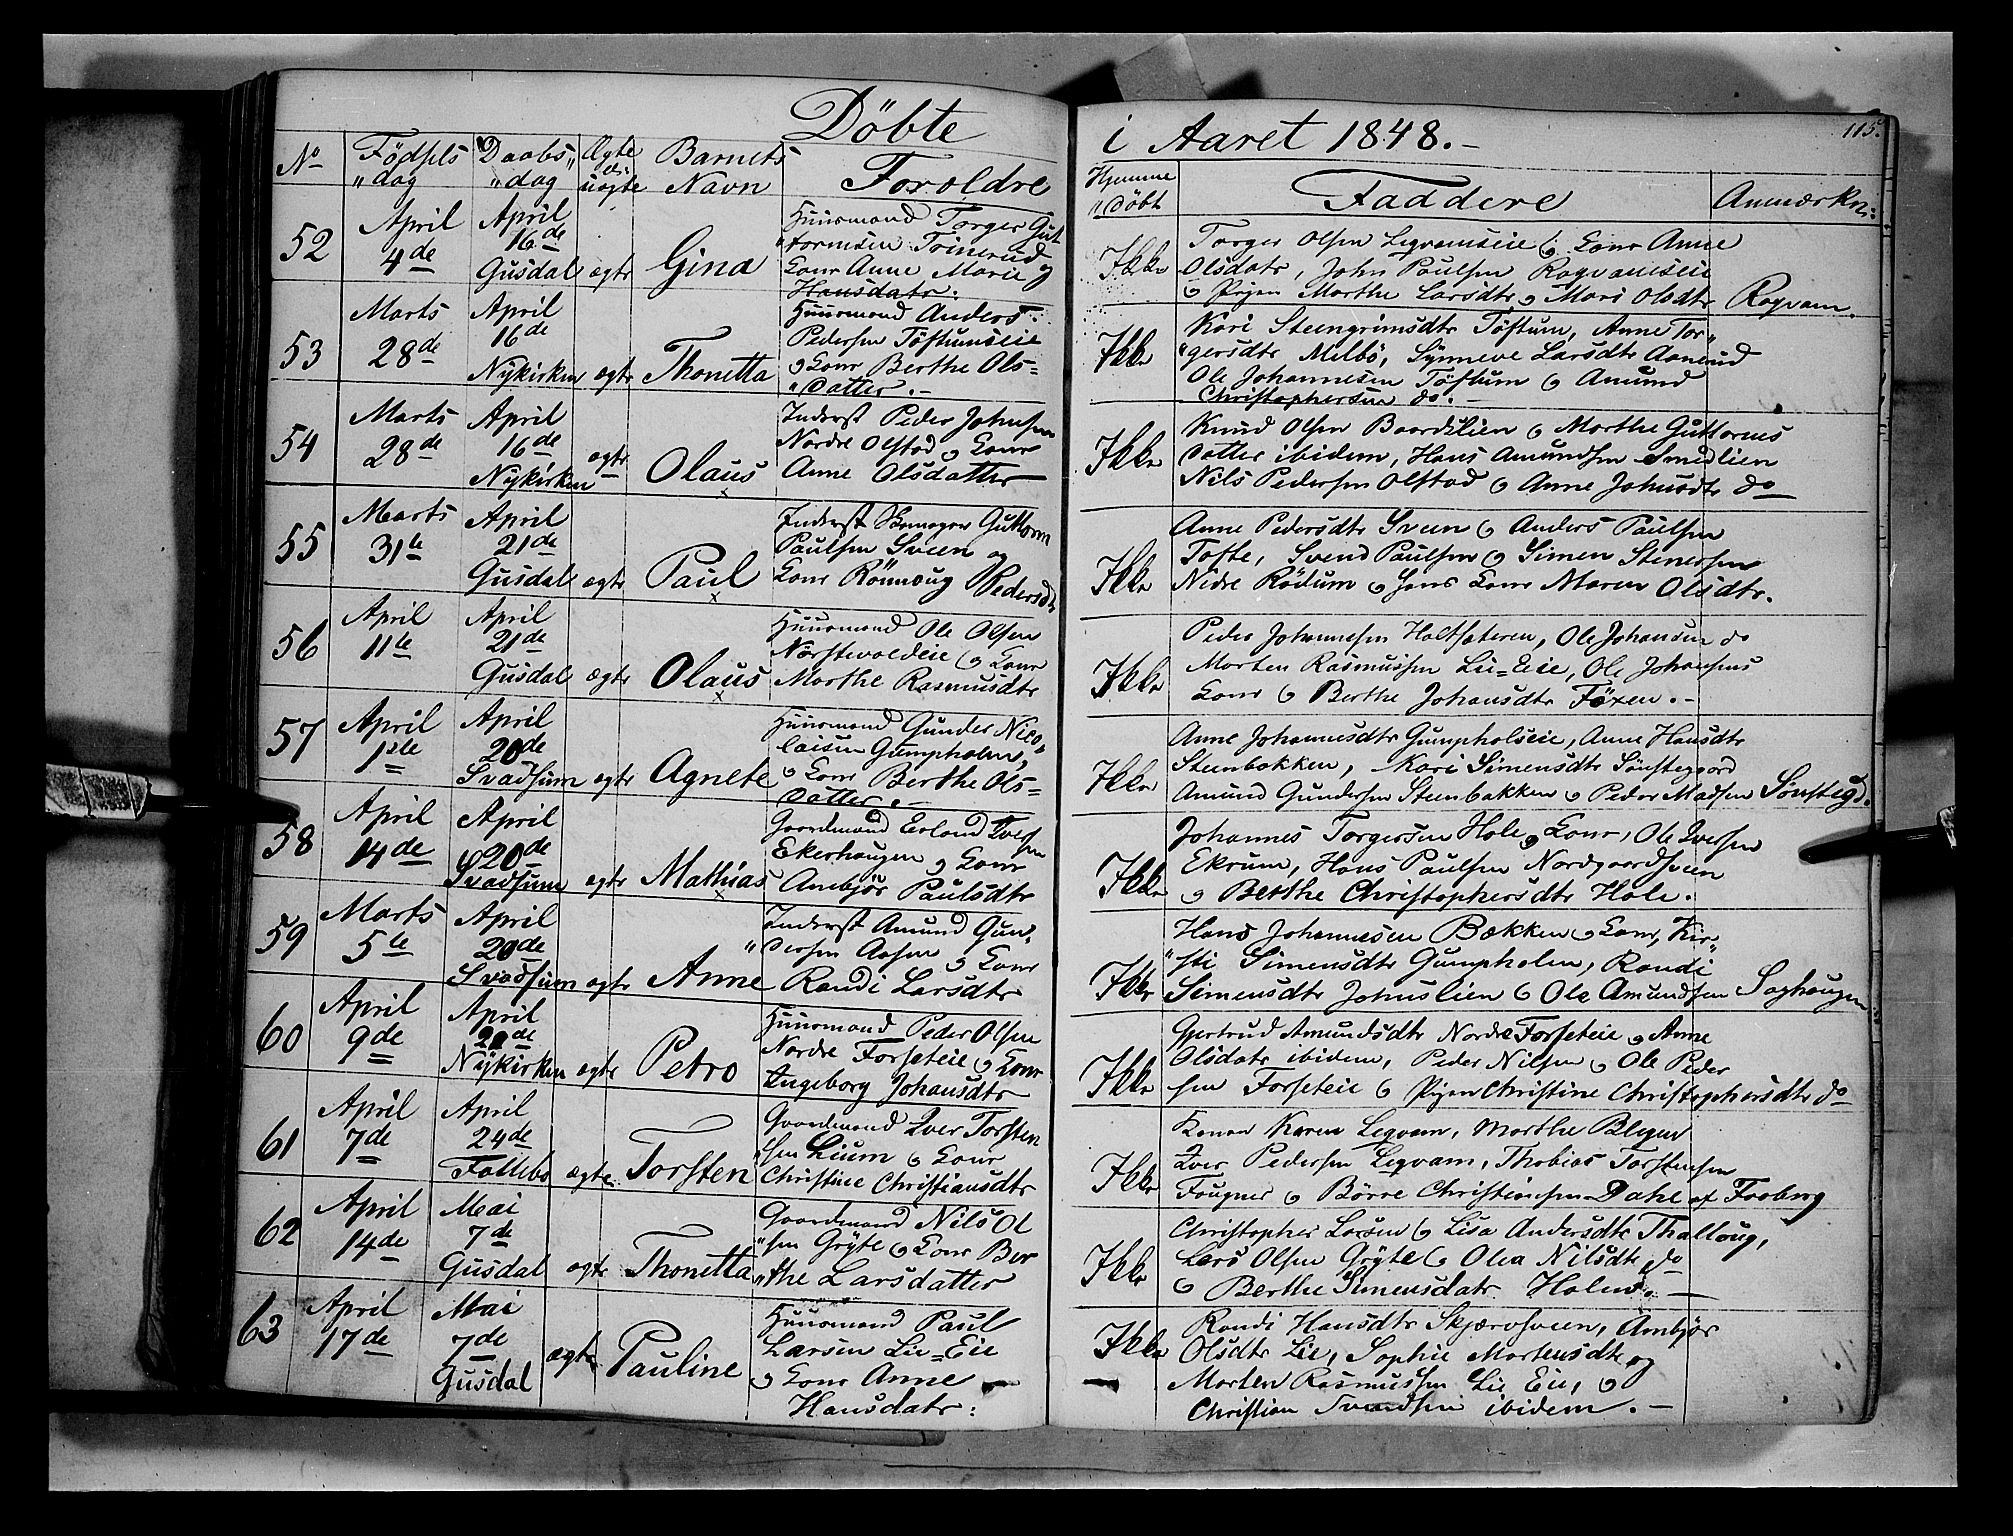 Döbte
i Aaret 1848.-
115.
No Födsels Daabs Ægte Barnets
"dag "dag el: uægte Navn Forældre
Hjemme
"döbt Faddere Anmærkn:
52 April 4de April 16de Gusdal ægte Gina
Huusmand Torger Gut
"tormsen Trinerud og
Konr Anne Marie
Hansdatr:
Ikke
Torger Olsen Legvamseie og Konr Anne
Olsdatr, John Paulsen Rogvamseie
og Pigen Marthe Larsdtr og Mari Olsdtr Rogvam.
53 Marts 28de April 16de Nykirken ægte Thonetta
Huusmand Anders
Pedersen Töftumseie
og Konr Berthe Ols=
"datter.-
Ikke
Kari Steengrimsdtr Töftum, Anne Tor"
"gersdtr Melbö, Synneve Larsdtr Aamund
Ole Johannesen Töftum og Amund
Christophersen do.-
54 Marts 28de April 16de Nykirken ægte Olaus
Inderst Peder Johnsen
Nordre Olstad og Konr
Anne Olsdatter
Ikke
Knud Olsen Baardslien og Marthe Guttorms
datter ibidem, Hans Amundsen Smedlien
Nils Pedersen Olstad og Anne Johnsdtr do
55 Marts 31te April 21de Gusdal ægte Paul
Inderst Skomager Guttorm
Paulsen Sveen og
Konr Rönnoug Pedersdtr
Ikke
Anne Pedersdtr Sveen og Anders Paulsen
Tofte, Svend Paulsen og Simen Stenersen
Nedre Rödum og hans Konr Maren Olsdtr.
56 April 11te April 21de Gusdal ægte Olaus
Huusmand Ole Olsen
Norstevoldeie og Konr
Marthe Rasmusdtr
Ikke
Peder Johannesen Holtsæteren, Ole Johansen do
Morten Rasmussen Lie=Eie, Ole Johansens
Konr og Berthe Johansdtr Föxen.-
57 April 1ste April 20de Svadsum ægte Agnete
Huusmand Gunder Nico"
"laisen Gumpholen,
og Konr Berthe Ols=
datter.-
Ikke
Anne Johannesdtr Gumpholseie, Anne Hansdtr
Steenbakken, Kari Simensdtr Sönstegaard
Amund Gundersen Steenbakken og Peder Madsen Sönstegd.
58 April 14de April 20de Svadsum ægte Mathias
Gaardmand Erland Iversen
Ekerhaugen og Konr
Ambjör Paulsdtr
Ikke
Johannes Torgersen Hole og Konr, Ole Iversen
Ekrum, Hans Paulsen Nordgaardsveen
og Berthe Christophersdtr Hole.
59 Marts 5te April 20de Svadsum ægte Anne
Inderst Amund Gun"
"dersen Aasen og Konr
Randi Larsdtr
Ikke
Hans Johannesen Bækken og Konr, Kir"
"sti Simensdtr Gumpholen, Randi
Simensdtr Johnslien og Ole Amundsen Saghaugen
60 April 9de April 20de Nykirken ægte Petro
Huusmand Peder Olsen
Nordre Forseteie og Konr
Ingeborg Johansdtr
Ikke
Gjertrud Amundsdtr Nordre Forseteie og Anne
Olsdatr ibidem, Peder Nilsen og Ole Peder
sen Forseteie og Pigen Christine Christophersdtr do
61 April 7de April 24de Follebo ægte Torsten
Gaardmand Iver Torsten
"sen Lium og Konr
Christine Christiansdtr
Ikke
Konen Karen Legvam, Marthe Blegen
Iver Pedersen Legvam, Thobias Torstensen
Fougner og Börre Christiansen Dahl af Faaberg
62 April 14de Mai 7de Gusdal ægte Thonetta
Gaardmand Nils Ol
"sen Gryte og Konr Ber
"the Larsdatter
Ikke
Christopher Larsen og Lisa Andersdtr Thalloug,
Lars Olsen Gryte og Olea Nilsdtr do
og Berthe Simensdatr Holen.-
63 April 17de Mai 7de Gusdal ægte Pauline
Huusmand Paul
Larsen Lie=Eie
og Konr Anne
Hansdatr:
Ikke
Randi Hansdtr Skjærvsveen, Ambjör
Olsdtr Lie, Sophie Mortensdtr og
Morten Rasmussen Lie Eie, og
Christian Svendsen ibidem.-